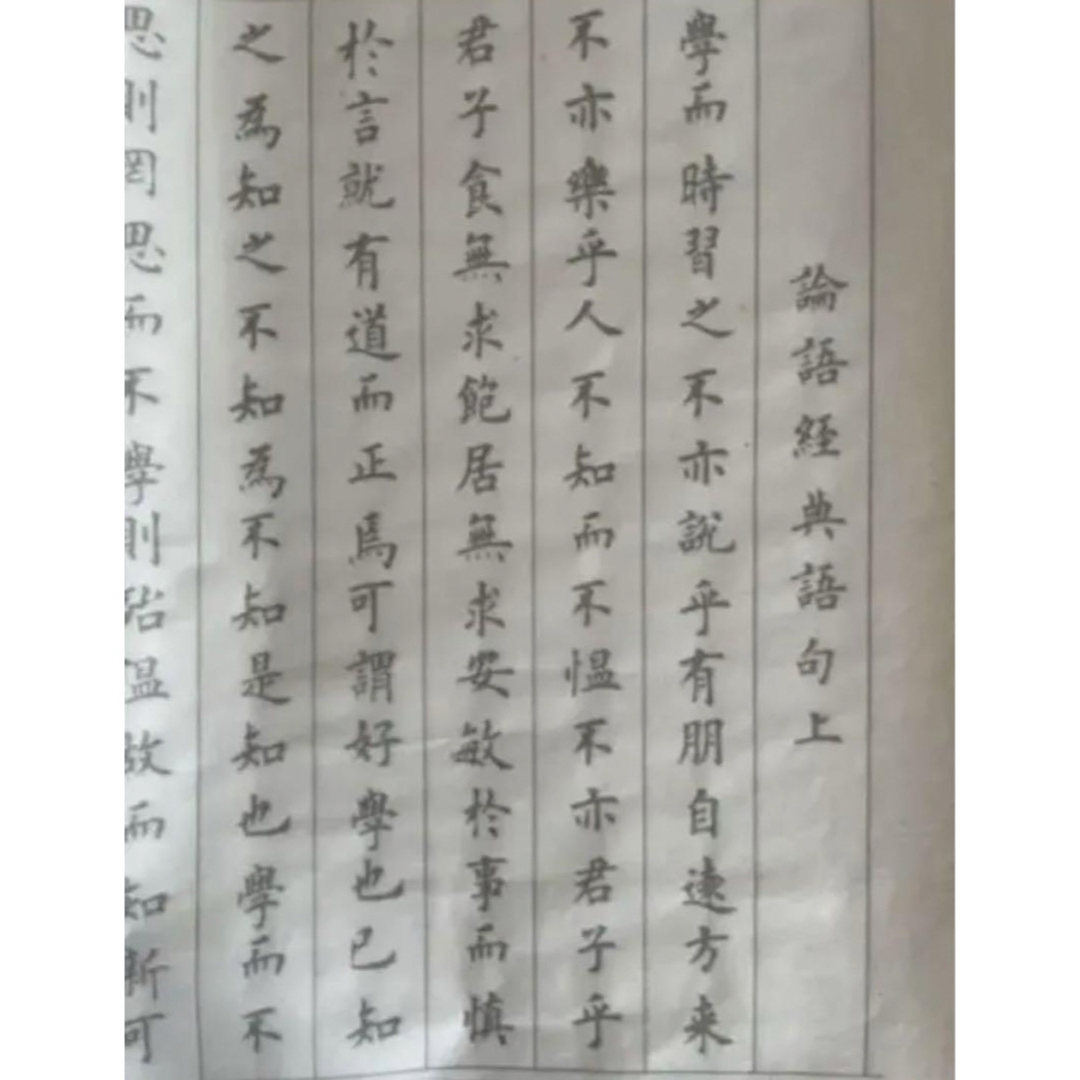 論語經典語句上
學而時習之不亦說乎有朋自遠方来
不亦樂乎人不知而不愠不亦君子乎
君子食無求飽居無求安敏於事而慎
於言就有道而正焉可謂好學也已知
之為知之不知為不知是知也學而不
思則罔思而不學則殆温故而知新可